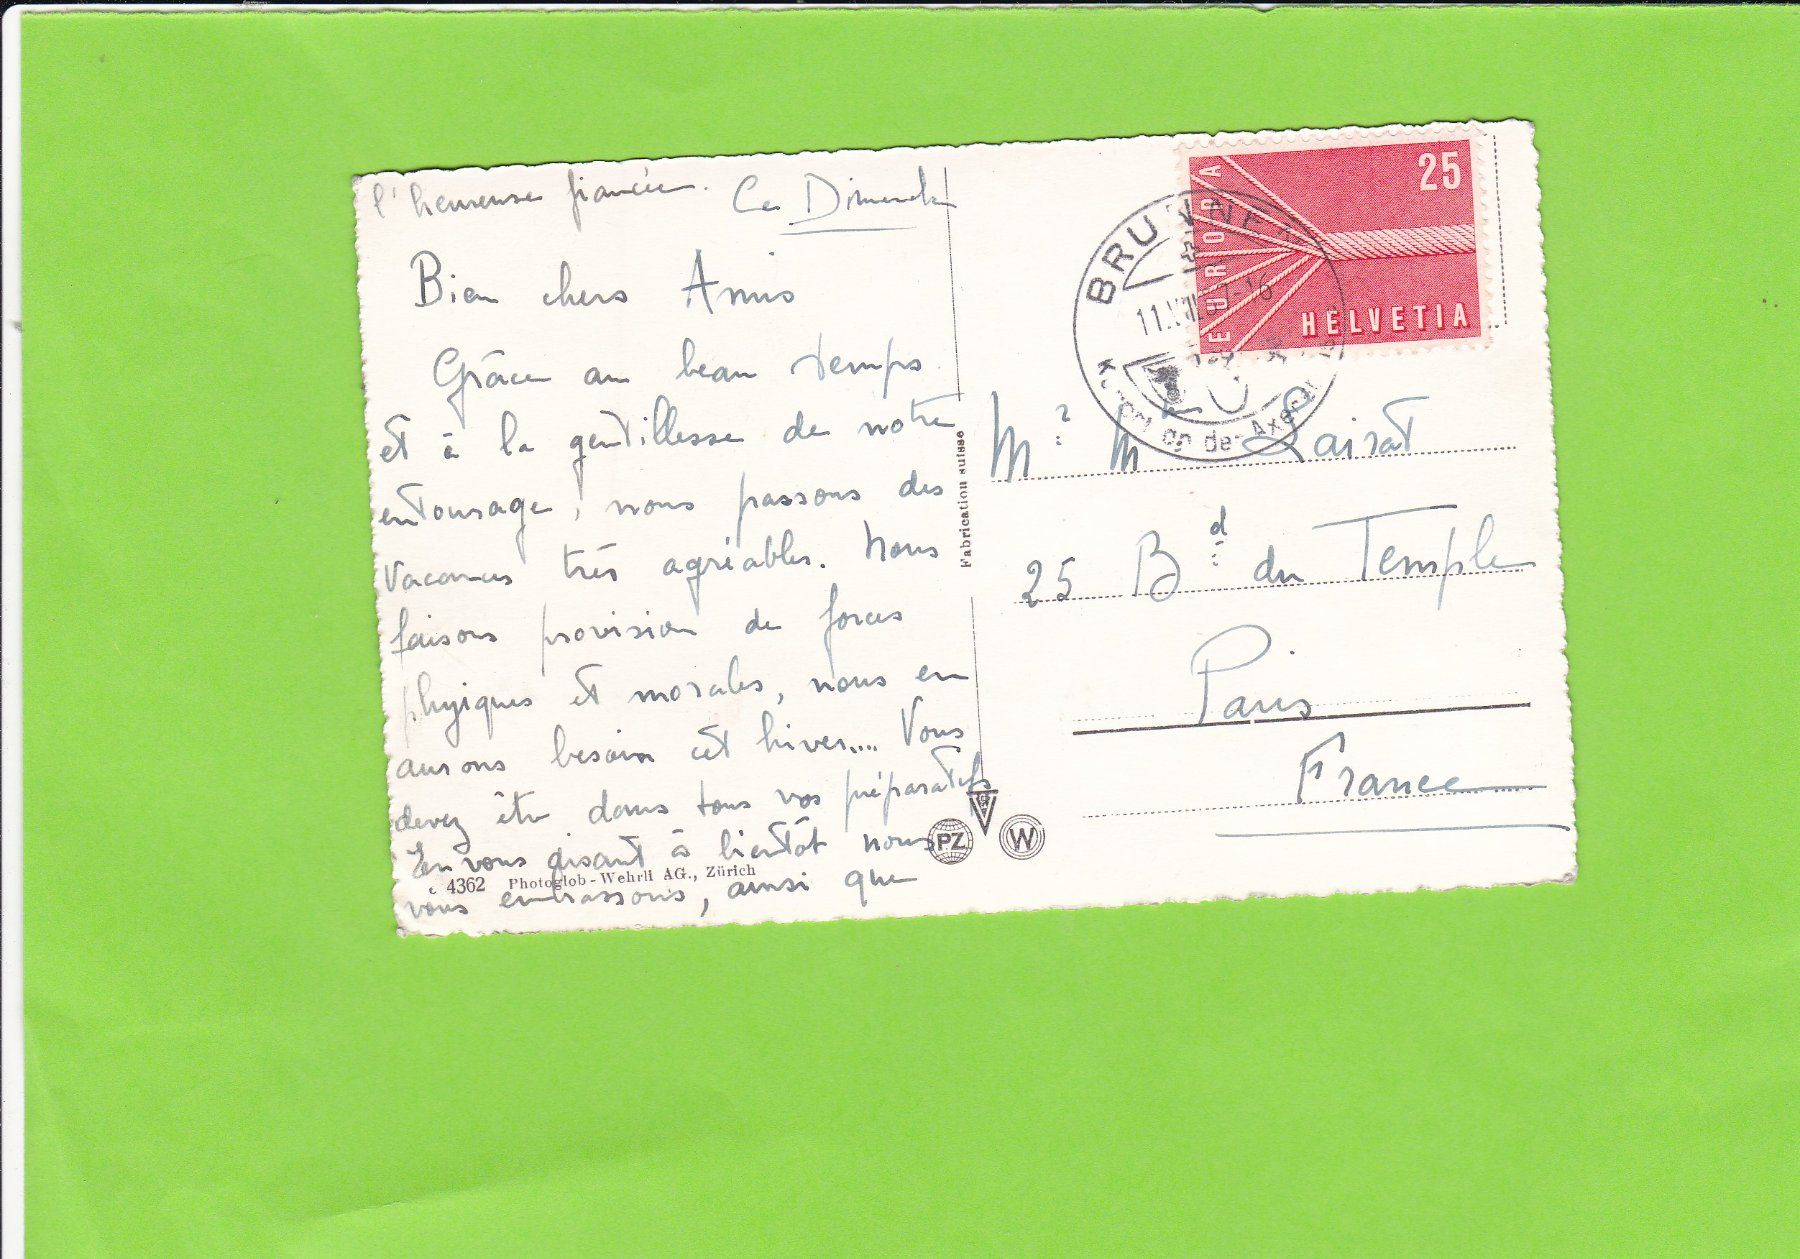 l'heureuse fiancée. Ce Dimanche
Bien chers Amis
Grâce au beau temps
et à la gentillesse de notre
entourage, nous passons des
vacances très agréables. Nous
faisons provision de forces
physiques et morales, nous en
aurons besoin cet hiver.... Vous
devez être dans tous vos préparatifs
En vous disant à bientôt nous
vous embrassons, ainsi que
4362 Photoglob-Wehrli AG., Zürich
Fabrication suisse
PZ
W
BRUNNEN
EUROPA
25
HELVETIA
M. Mme Lairat
25 Bd du Temple
Paris
France